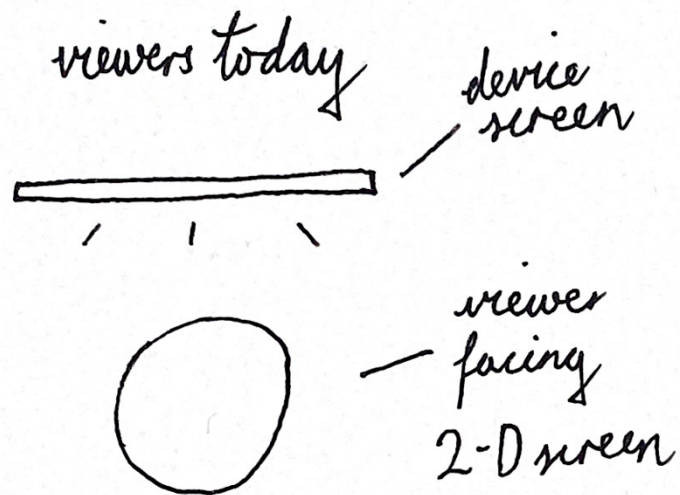 viewers today
device
screen
viewer
facing
2-D screen